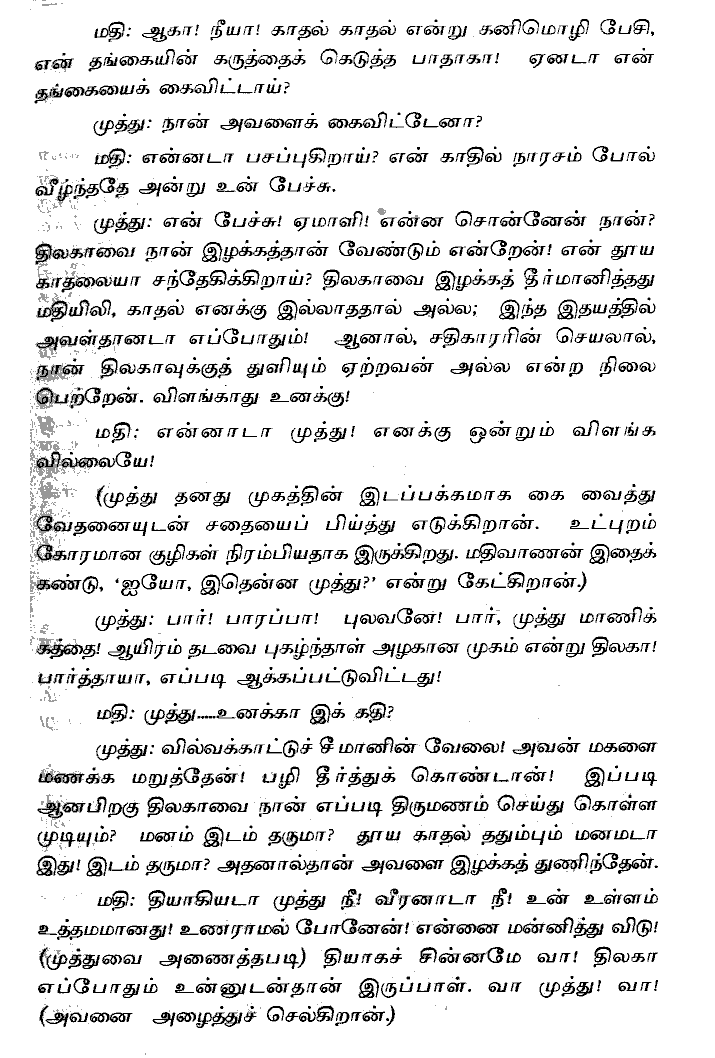 மதி: ஆகா! நீயா! காதல் காதல் என்று கனிமொழி பேசி,
என் தங்கையின் கருத்தைக் கெடுத்த பாதாகா! ஏனடா என்
தங்கையைக் கைவிட்டாய்?
முத்து: நான் அவளைக் கைவிட்டேனா?
மதி: என்னடா பசப்புகிறாய்? என் காதில் நாரசம் போல்
வீழ்ந்ததே அன்று உன் பேச்சு.
முத்து: என் பேச்சு! ஏமாளி! என்ன சொன்னேன் நான்?
திலகாவை நான் இழக்கத்தான் வேண்டும் என்றேன்! என் தூய
காதலையா சந்தேகிக்கிறாய்? திலகாவை இழக்கத் தீர்மானித்தது
மதியிலி, காதல் எனக்கு இல்லாததால் அல்ல; இந்த இதயத்தில்
அவள்தானடா எப்போதும்! ஆனால், சதிகாரரின் செயலால்,
நான் திலகாவுக்குத் துளியும் ஏற்றவன் அல்ல என்ற நிலை
பெற்றேன். விளங்காது உனக்கு!
மதி: என்னாடா முத்து! எனக்கு ஒன்றும் விளங்க
வில்லையே!
(முத்து தனது முகத்தின் இடப்பக்கமாக கை வைத்து
வேதனையுடன் சதையைப் பிய்த்து எடுக்கிறான். உட்புறம்
கோரமான குழிகள் நிரம்பியதாக இருக்கிறது. மதிவாணன் இதைக்
கண்டு, ‘ஐயோ, இதென்ன முத்து?’ என்று கேட்கிறான்.)
முத்து: பார்! பாரப்பா! புலவனே! பார், முத்து மாணிக்
கத்தை! ஆயிரம் தடவை புகழ்ந்தாள் அழகான முகம் என்று திலகா!
பார்த்தாயா, எப்படி ஆக்கப்பட்டுவிட்டது!
மதி: முத்து.....உனக்கா இக் கதி?
முத்து: வில்வக்காட்டுச் சீமானின் வேலை! அவன் மகளை
மணக்க மறுத்தேன்! பழி தீர்த்துக் கொண்டான்! இப்படி
ஆனபிறகு திலகாவை நான் எப்படி திருமணம் செய்து கொள்ள
முடியும்? மனம் இடம் தருமா? தூய காதல் ததும்பும் மனமடா
இது! இடம் தருமா? அதனால்தான் அவளை இழக்கத் துணிந்தேன்.
மதி: தியாகியடா முத்து நீ! வீரனாடா நீ! உன் உள்ளம்
உத்தமமானது! உணராமல் போனேன்! என்னை மன்னித்து விடு!
(முத்துவை அணைத்தபடி) தியாகச் சின்னமே வா! திலகா
எப்போதும் உன்னுடன்தான் இருப்பாள். வா முத்து! வா!
(அவனை அழைத்துச் செல்கிறான்.)